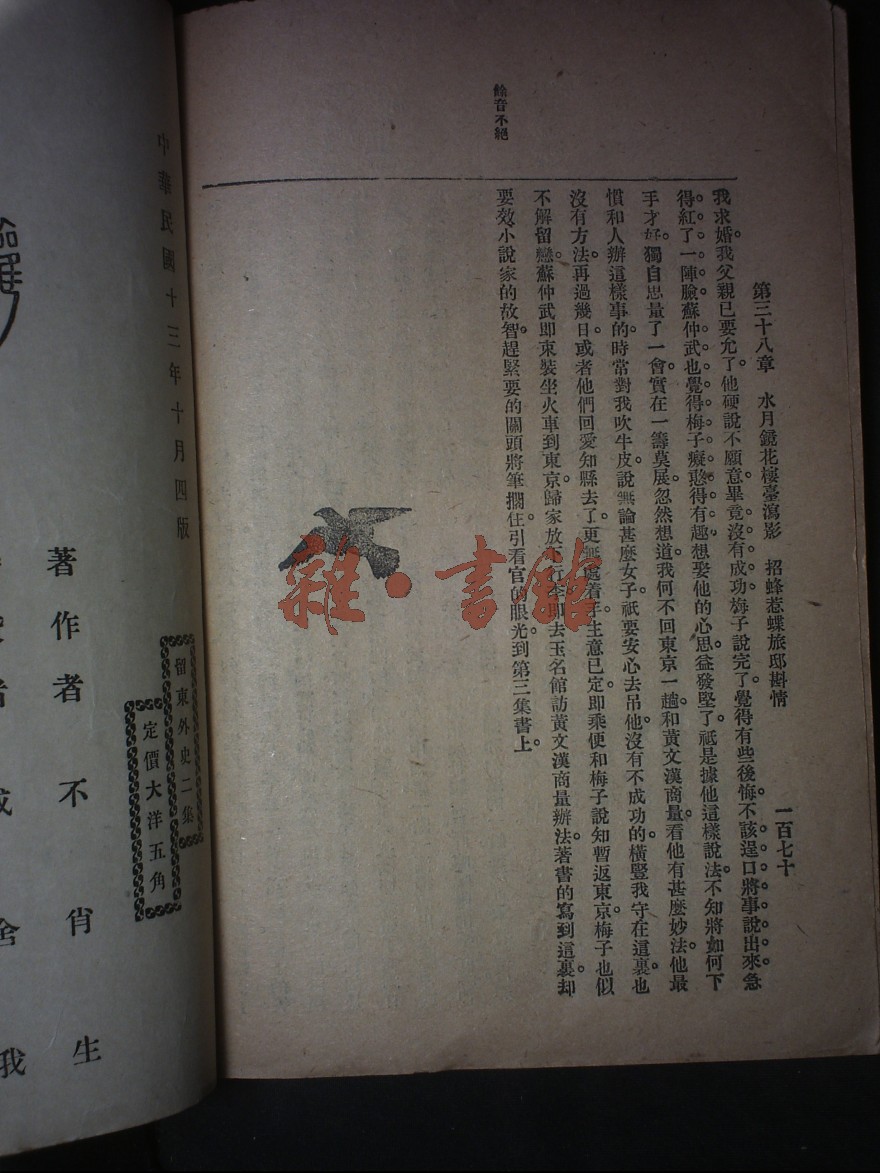 第三十八章　水月鏡花樓臺瀉影　招蜂惹蝶旅邸斟情　一百七十
我求婚。我父親已要允了。他硬說不願意。畢竟沒有成功。梅子說完了。覺得有些後悔。不該逞口將事說出來。急
得紅了一陣臉。蘇仲武也覺得梅子癡憨得有趣。想娶他的心思。益發堅了。祗是據他這樣說法。不知將如何下
手才好。獨自思量了一會。實在一籌莫展。忽然想道。我何不回東京一趟。和黃文漢商量。看他有甚麼妙法。他最
慣和人辦這樣事的。時常對我吹牛皮。說無論甚麼女子。祇要安心去吊他。沒有不成功的。橫豎我守在這裏。也
沒有方法。再過幾日。或者他們回愛知縣去了。更無處着手。主意已定。即乘便和梅子說知。暫返東京。梅子也似
不解留戀。蘇仲武即束裝坐火車到東京。歸家放下行李。即去玉名館訪黃文漢商量辦法。著書的寫到這裏。却
要效小說家的故智。趕緊要的關頭將筆擱住。引看官的眼光。到第三集書上。
餘音不絕
雜·書館
中華民國十三年十月四版
留東外史二集
定價大洋五角
著作者　不肖生